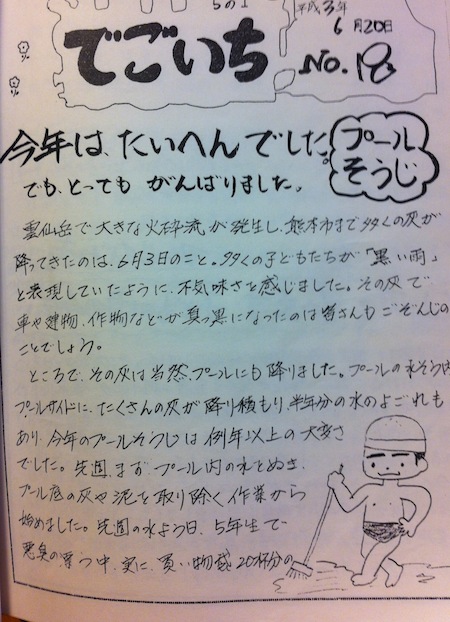 5の1
平成3年
6月20日
でごいち
No.18
今年は、たいへんでした。
プール
そうじ
でも、とっても がんばりました。
雲仙岳で大きな火砕流が発生し、熊本市まで多くの灰が
降ってきたのは、6月3日のこと。多くの子どもたちが「黒い雨」
と表現していたように、不気味さを感じました。その灰で
車や建物、作物などが真っ黒になったのは皆さんもごぞんじの
ことでしょう。
ところで、その灰は当然、プールにも降りました。プールの水そう内
プールサイドに、たくさんの灰が降り積もり、半年分の水のよごれも
あり、今年のプールそうじは例年以上の大変さ
でした。先週、まず、プール内の水をぬき、
プール底の灰や泥を取り除く作業から
始めました。先週の水よう日、5年生で
悪臭の漂う中、実に、買い物袋20杯分の